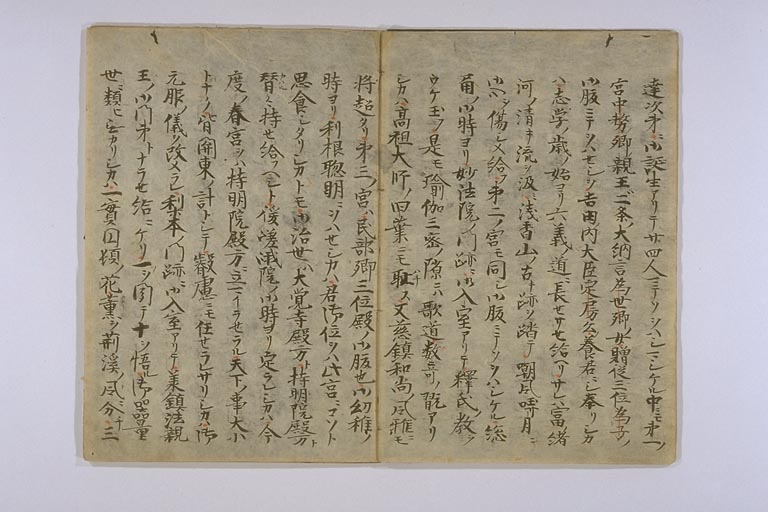 達次第ニ御誕生アリテ廿四人ニテソヲハシマシケル中ニモ第一ノ
宮中務卿親王ハ二条ノ大納言為世卿ノ女贈従三位為子ノ
御腹ニテヲハセシヲ吉田内大臣定房公養君ニシ奉リシカ
ハ志学ノ歳ノ始ヨリ六義ノ道ニ長セサセ給ヘリサレハ富緒
河ノ清キ流ヲ汲ミ浅香山ノ古キ跡ヲ踏テ嘲風哢月ニ
御心ヲ傷シメ給フ第二ノ宮モ同シ御腹ニテソヲハシケル総
角ノ御時ヨリ妙法院ノ門跡ニ御入室アリテ釈氏ノ教ヲ
ウケ玉フ是モ瑜伽三密ノ隙ニハ歌道数奇ノ翫アリ
シカハ高祖大師ノ旧業ニモ耻ス又慈鎮和尚ノ風雅ニモ
将超タリ第三ノ宮ハ民部卿三位殿ノ御腹也御幼稚ノ
時ヨリ利根聡明ニヲハセシカハ君御位ヲハ此宮ニコソト
思食シタリシカトモ御治世ハ大覚寺殿方ト持明院殿方ト
替々持セ給ヘシト後嵯峨院ノ御時ヨリ定ラレシカハ今
度ノ春宮ヲハ持明院殿方ニ立マイラセラル天下ノ事大小
トナク皆関東ノ計トシテ叡慮ニモ任セラレサリシカハ御
元服ノ儀ヲ改メラレ梨本ノ門跡ニ御入室アリテ承鎮法親
王ノ御門弟トナラセ給ニケリ一ヲ聞テ十ヲ悟ル御器量
世ニ類ヒモ無カリシカハ一実円頓ノ花薫ヲ荊溪ノ風ニ分チ三